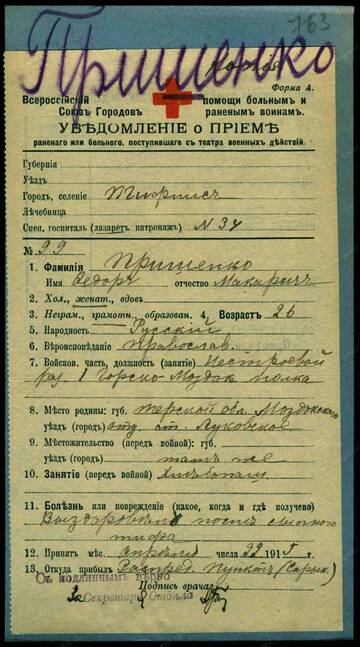 163
Пришенко
копия
Форма А.
Всероссійскій Союзъ Городовъ помощи больнымъ и раненымъ воинамъ.
УВѢДОМЛЕНІЕ о ПРІЕМѢ
раненаго или больного, поступившаго съ театра военныхъ дѣйствій.
Губернія
Уѣздъ
Городъ, селеніе Тифлисъ
Лѣчебница
Спец. госпиталь (лазаретъ патронажъ) N 34
№ 99
1. Фамилія Пришенко
Имя Федоръ отчество Макаричъ
2. Хол., женат., вдовъ.
3. Неграм., грамотн., образован. 4. Возрастъ 26
5. Народность Русскій
6. Вѣроисповѣданіе Православ.
7. Войсков. часть, должность (занятіе) Нестроевой
1 Горско-Моздок полка
8. Мѣсто родины: губ. Терской обл. Моздокскаго
уѣздъ (городъ) отд. ст. Луковское
9. Мѣстожительство (передъ войной): губ.
уѣздъ (городъ) тамъ же
10. Занятіе (передъ войной) Хлѣбопаш.
11. Болѣзнь или поврежденіе (какое, когда и гдѣ получено)
Выздоровленіе послѣ сыпного
тифа
12. Принятъ мѣс. апрѣля числа 22 1915 г.
13. Откуда прибылъ Распред. Пунктъ (Сарык.)
Съ подлиннымъ вѣрно
Подпись врача
За Секретарь Отдѣла